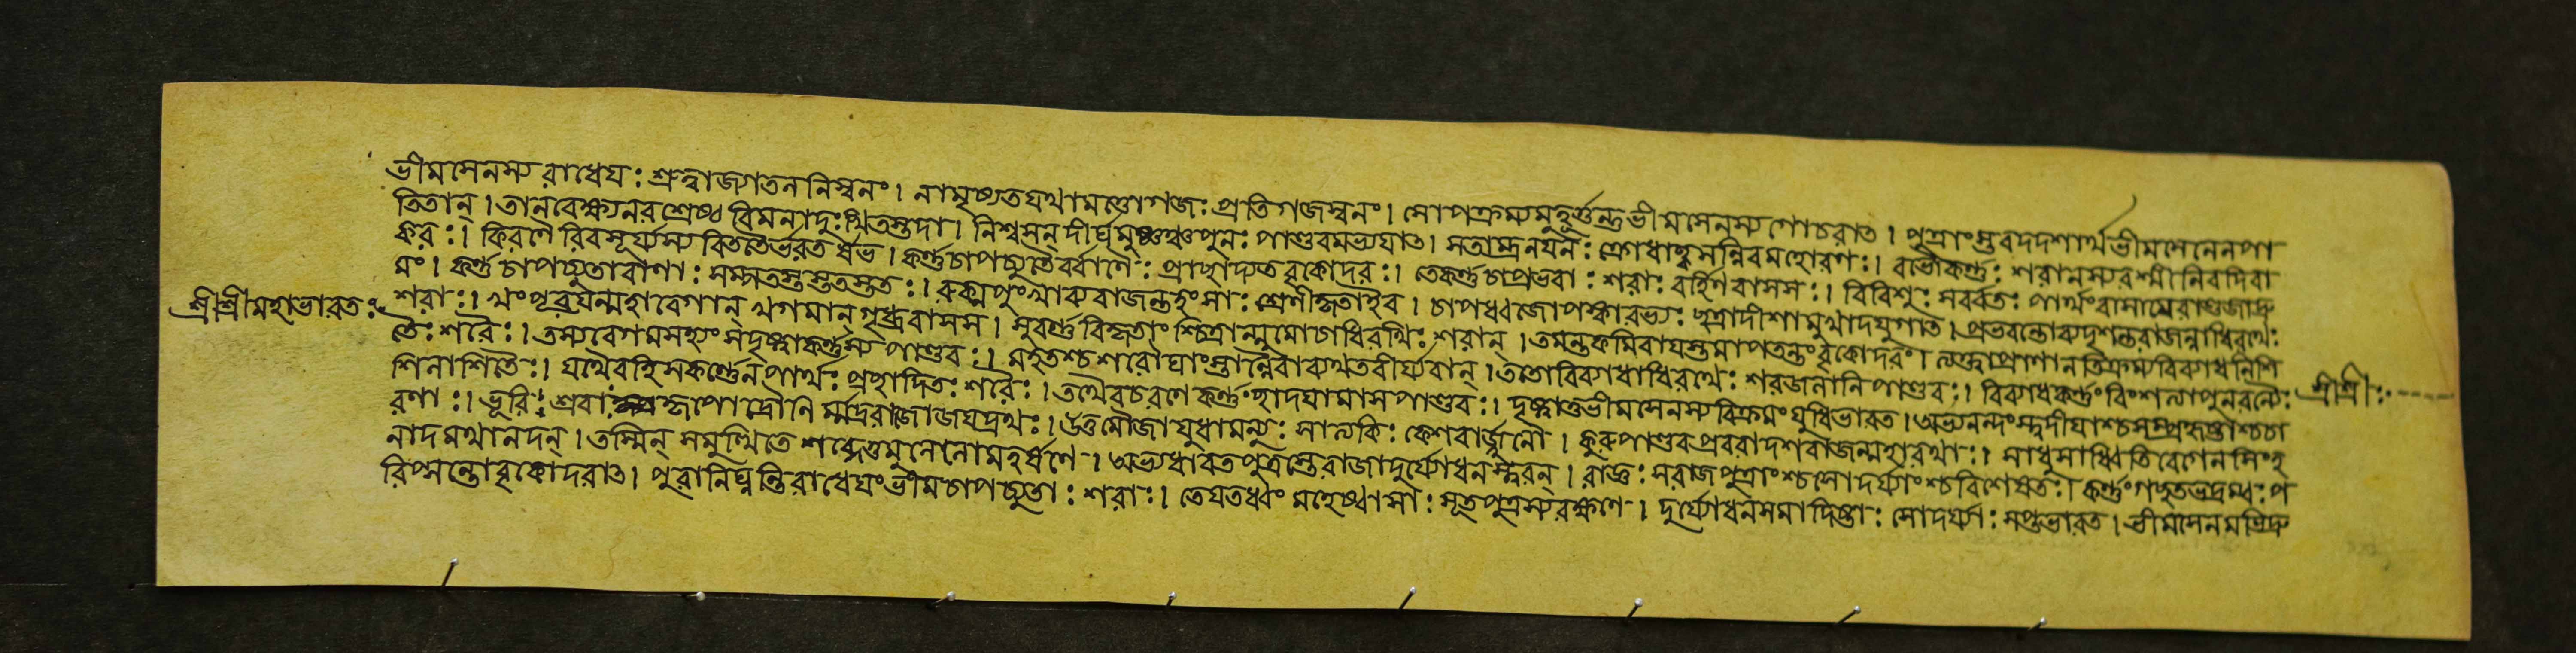 ভীমসেনস্য রাধেযঃ শ্রুত্বাজ্যাতলনিস্বনং। নামৃষ্যতযথামত্তোগজঃ প্রতিগজস্বনং। সোপক্রম্যমুহূর্ত্তন্তুভীমসেনস্যগোচরাত। পুত্রাংস্তবদদর্শাথভীমসেনেনপা
তিতান্। তানবেক্ষ্যনরশ্রেষ্ঠ বিমনাদুঃখিতস্তদা। নিশ্বসন্ দীর্ঘমুষ্ণঞ্চপুনঃ পাণ্ডবমভ্যযাত। সতাম্রনযনঃ ক্রোধাচ্ছ্বসন্নিবমহোরগঃ। বভৌকর্ণ্ণঃ শরানস্যরশ্মীনিবদিবা
করঃ। কিরণৈ রিবসূর্য্যস্য বিততৈর্ভরতর্ষভ। কর্ণ্ণচাপচ্যুতৈর্ব্বাণৈঃ প্রাচ্ছাদ্যতবৃকোদরঃ। তেকর্ণ্ণচাপপ্রভবাঃ শরাঃ বর্হিণবাসসঃ। বিবিশুঃ সর্ব্বতঃ পার্থংবাসাযেবাণ্ডজাদ্রু
মং। কর্ণ্ণচাপচ্যুতাবাণাঃ সম্পতন্তস্ততস্ততঃ। রুক্মপুংখাব্যরাজন্তহংসাঃ শ্রেণীকৃতাইব। চাপধ্বজোপস্কারভ্যঃ ছত্রাদীশামুখাদযুগাত। প্রভবন্তোব্যদৃশ্যন্তরাজন্নাধিরথেঃ
শ্রীশ্রীমহাভারতঃ শরাঃ। খংপূরযন্মহাবেগান্ খগমান্ গৃধ্রবাসস। সুবর্ণ্ণবিকৃতাংশ্চিত্রান্মুমোচাধিরথিঃ শরান্। তমন্তকমিবাযস্তমাপতন্তংবৃকোদরং। ত্যক্ত্বাপ্রাণানতিক্রম্যবিব্যাধনিশি
তৈঃ শরৈঃ। তস্যবেগমসহ্যং সদৃষ্ট্বাকর্ণ্ণস্য পাণ্ডবঃ। মহতশ্চশরৌঘাংস্তান্নৈবাব্যথতবীর্য্যবান্। ততোবিব্যাধাধিরথেঃ শরজালানিপাণ্ডবঃ। বিব্যাধকর্ণ্ণংবিংশত্যাপুনরন্যৈঃ শ্রীশ্রীঃ
শিলাশিতৈঃ। যথৈবহিসকর্ণ্ণেনপার্থঃ প্রচ্ছাদিতঃ শরৈঃ। তথৈবচরণেকর্ণ্ণংছাদযামাসপাণ্ডবঃ। দৃষ্ট্বাতুভীমসেনস্যবিক্রমংযুধিভারত। অভ্যনন্দংস্ত্বদীযাশ্চসম্প্রহৃষ্টাশ্চচা
রণাঃ। ভূরিশ্রবাঃ কৃপোদ্রৌণির্ম্মদ্ররাজোজযদ্রথঃ। উত্তমৌজাযুধামন্যুঃ সাত্যকিঃ কেশবার্জ্জুনৌ। কুরুপাণ্ডবপ্রবরাদশরাজন্মহারথাঃ। সাধুসাধ্বিতিবেগেনসিংহ
নাদমথানদন্। তস্মিন্ সমুত্থিতে শব্দেতুমুলেলোমহর্ষণে। অভ্যধাবতপুত্রস্তেরাজাদুর্য্যোধনস্ত্বরন্। রাজ্ঞঃ সরাজপুত্রাংশ্চসোদর্য্যাংশ্চবিশেষতঃ। কর্ণ্ণংগচ্ছতভদ্রম্বঃপ
রিপ্সন্তোবৃকোদরাত। পুরানিঘ্নন্তিরাধেযংভীমচাপচ্যুতাঃ শরাঃ। তেযতধ্বং মহেষ্বাসাঃ সূতপুত্রস্যরক্ষণে। দুর্য্যোধনসমাদিষ্টাঃ সোদর্য্যাঃ সপ্তভারত। ভীমসেনমভিদ্রু